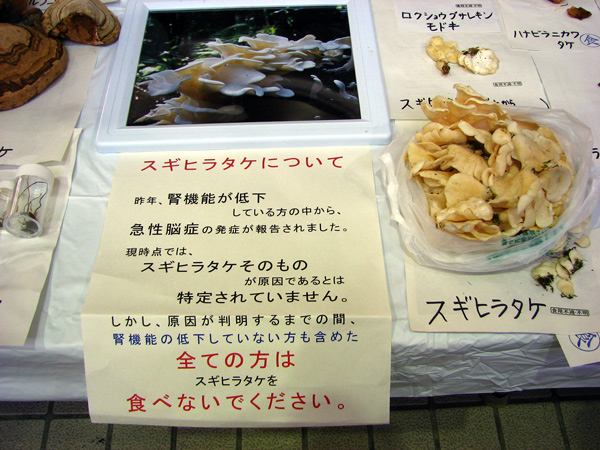 スギヒラタケについて
昨年、腎機能が低下
している方の中から、
急性脳症の発症が報告されました。
現時点では、
スギヒラタケそのもの
が原因であるとは
特定されていません。
しかし、原因が判明するまでの間、
腎機能の低下していない方も含めた
全ての方は
スギヒラタケを
食べないでください。
ロクショウグサレキン
モドキ
ハナビラニカワ
タケ
スギヒラタケ